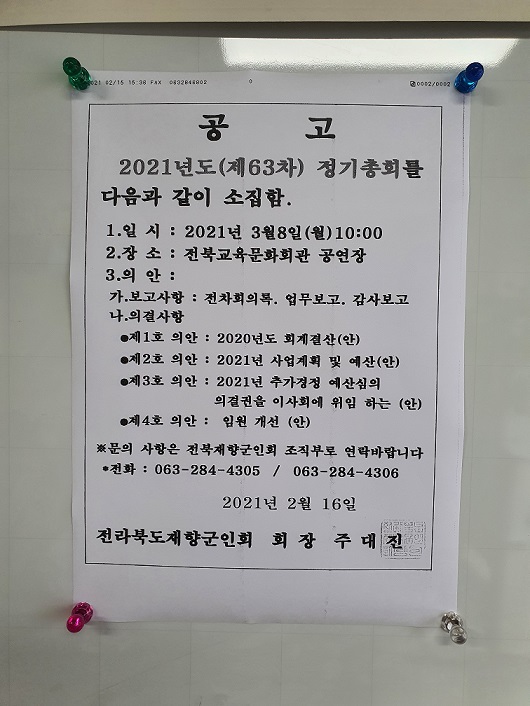 2021/02/15 15:36 FAX 0632846802 0 0002/0002
공 고
2021년도(제63차) 정기총회를
다음과 같이 소집함.
1.일 시 : 2021년 3월8일(월)10:00
2.장 소 : 전북교육문화회관 공연장
3.의 안 :
가.보고사항 : 전차회의록. 업무보고. 감사보고
나.의결사항
●제1호 의안 : 2020년도 회계결산(안)
●제2호 의안 : 2021년 사업계획 및 예산(안)
●제3호 의안 : 2021년 추가경정 예산심의
의결권을 이사회에 위임 하는 (안)
●제4호 의안 : 임원 개선 (안)
※문의 사항은 전북재향군인회 조직부로 연락바랍니다
*전화 : 063-284-4305 / 063-284-4306
2021년 2월 16일
전라북도재향군인회 회 장 주 대 진